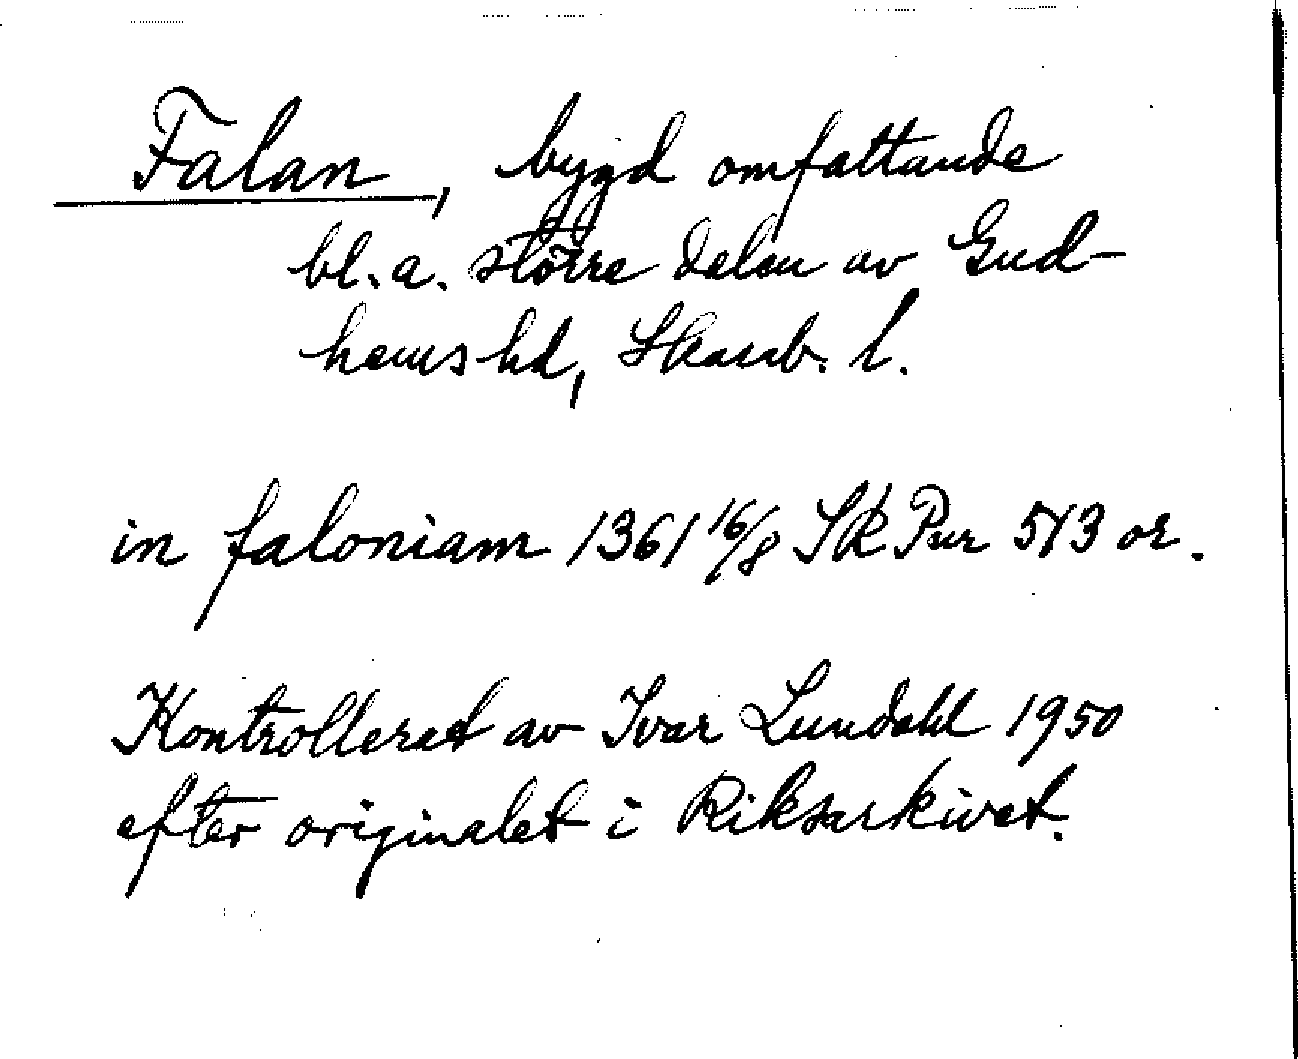 Falan, bygd omfattande
bl. a. större delen av Gud-
hems hd, Skarab. l.
in faloniam 1361 16/8 SRPur 513 or.
Kontrollerat av Ivar Lundahl 1950
efter originalet i Riksarkivet.